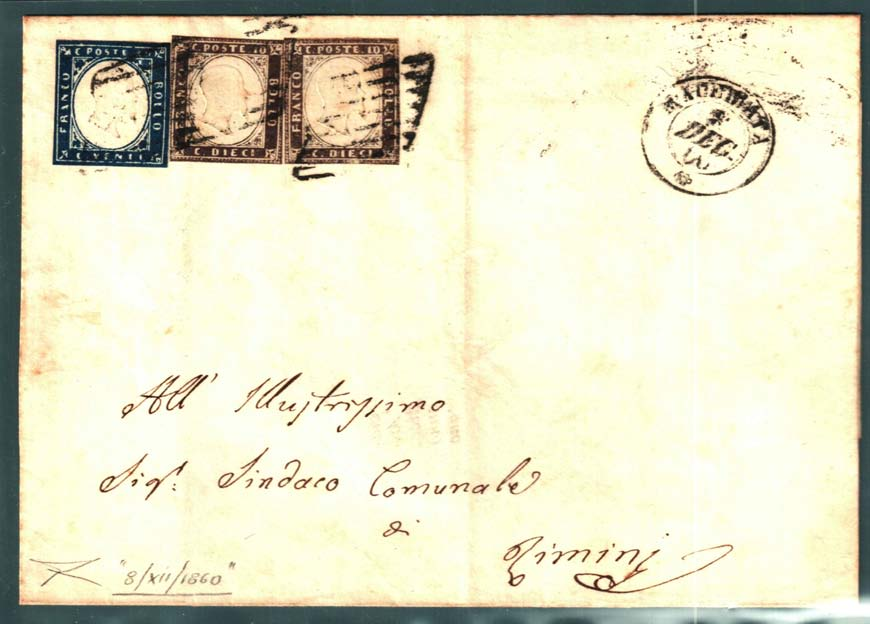 C. POSTE
FRANCO
BOLLO
C. VENTI
C. POSTE 10
BOLLO
C. DIECI
C. POSTE 10
FRANCO
BOLLO
C. DIECI
MACERATA
DEC
All' Illustrissimo
Sigr. Sindaco Comunale
di
Rimini
"8/XII/1860"